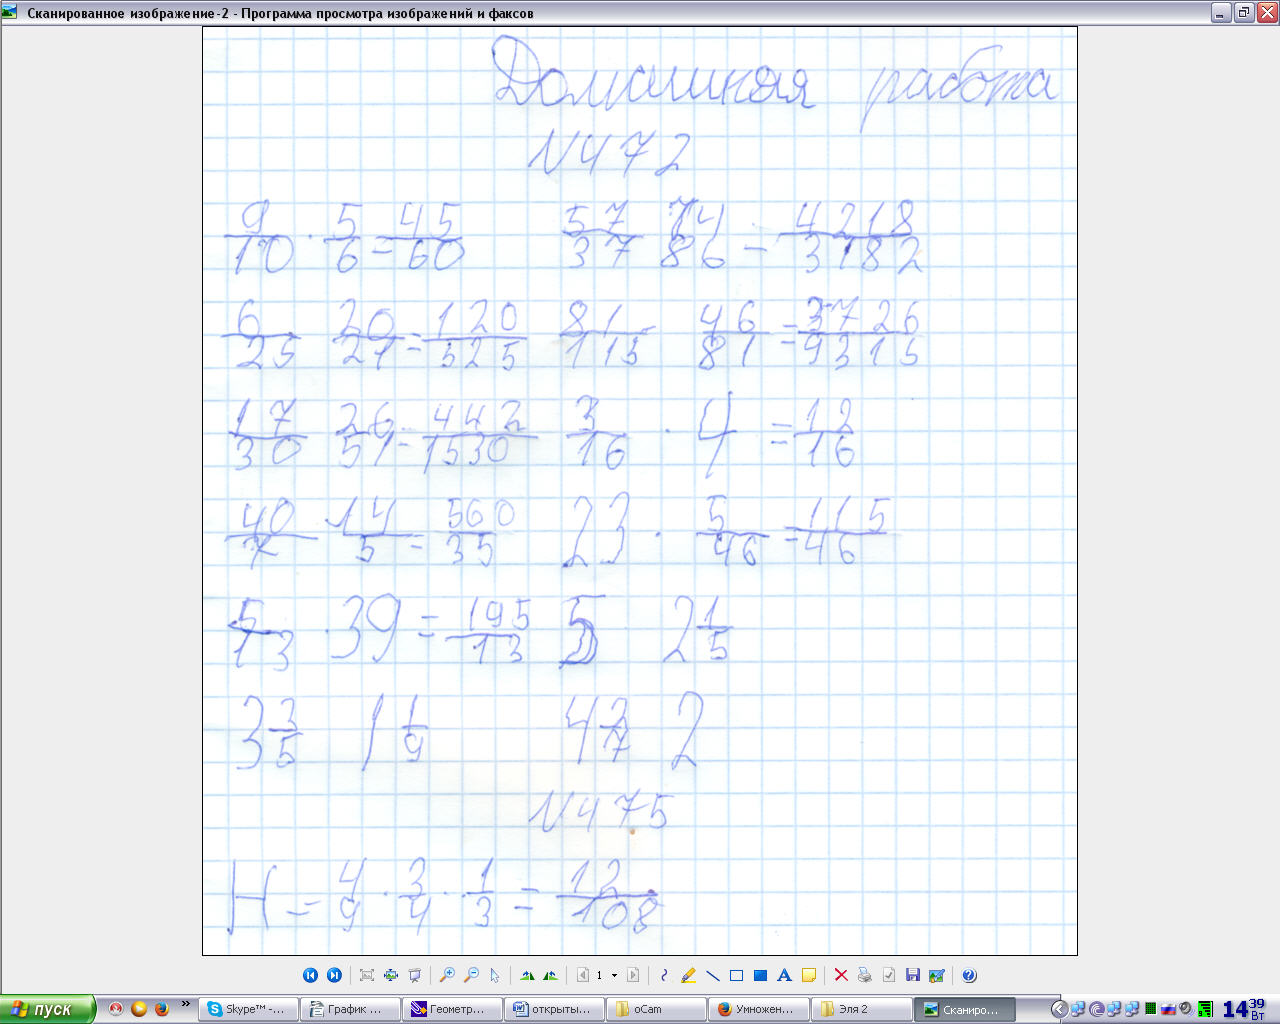 Сканированное изображение-2 - Программа просмотра изображений и факсов
Домашняя работа
№472
9/10 · 5/6 = 45/60 57/37 74/86 = 4218/3182
6/25 20/21 = 120/525 81/115 46/81 = 3726/9315
17/30 26/51 = 442/1530 3/16 · 4 = 12/16
40/7 · 14/5 = 560/35 23 · 5/46 = 115/46
5/13 · 39 = 195/13 5 2 1/5
3 3/5 1 1/9 4 2/7 2
№475
Н = 4/9 · 3/4 · 1/3 = 12/108
1
пуск
Skype™ -...
График ...
Геометр...
открыты...
oCam
Умножен...
Эля 2
Сканиро...
14 39
Вт